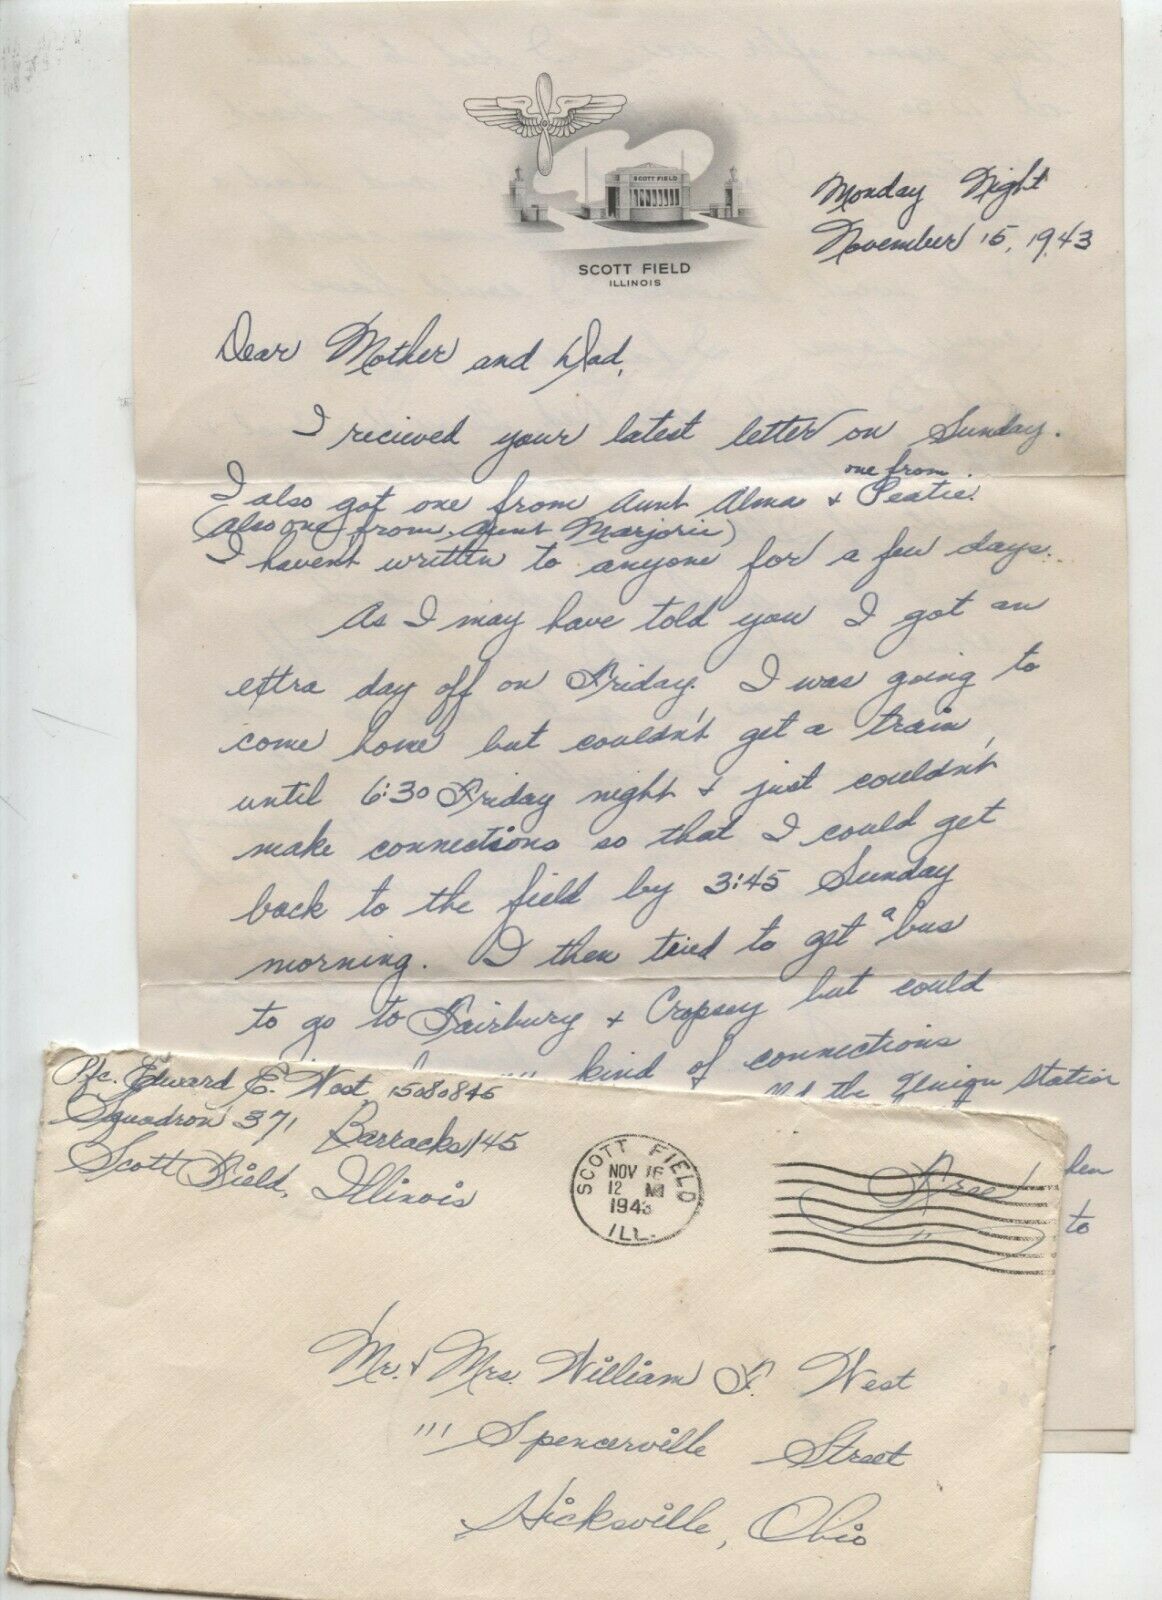 SCOTT FIELD
SCOTT FIELD
ILLINOIS
Monday Night
November 15, 1943
Dear Mother and Dad,
I recieved your latest letter on Sunday.
one from
I also got one from Aunt Alma + Peatie.
(Also one from Aunt Marjorie)
I havent written to anyone for a few days.
As I may have told you I got an
extra day off on Friday. I was going to
come home but couldn't get a train
until 6:30 Friday night + just couldn't
make connections so that I could get
back to the field by 3:45 Sunday
morning. I then tried to get a bus
to go to Fairbury + Cropsey but could
kind of connections
the Union Station
to
Pfc. Edward E. West, 15080845
Squadron 371 Barracks 145
Scott Field, Illinois
SCOTT FIELD
NOV 16
12 M
1943
ILL.
Free
Mr. + Mrs. William F. West
111 Spencerville Street
Hicksville, Ohio